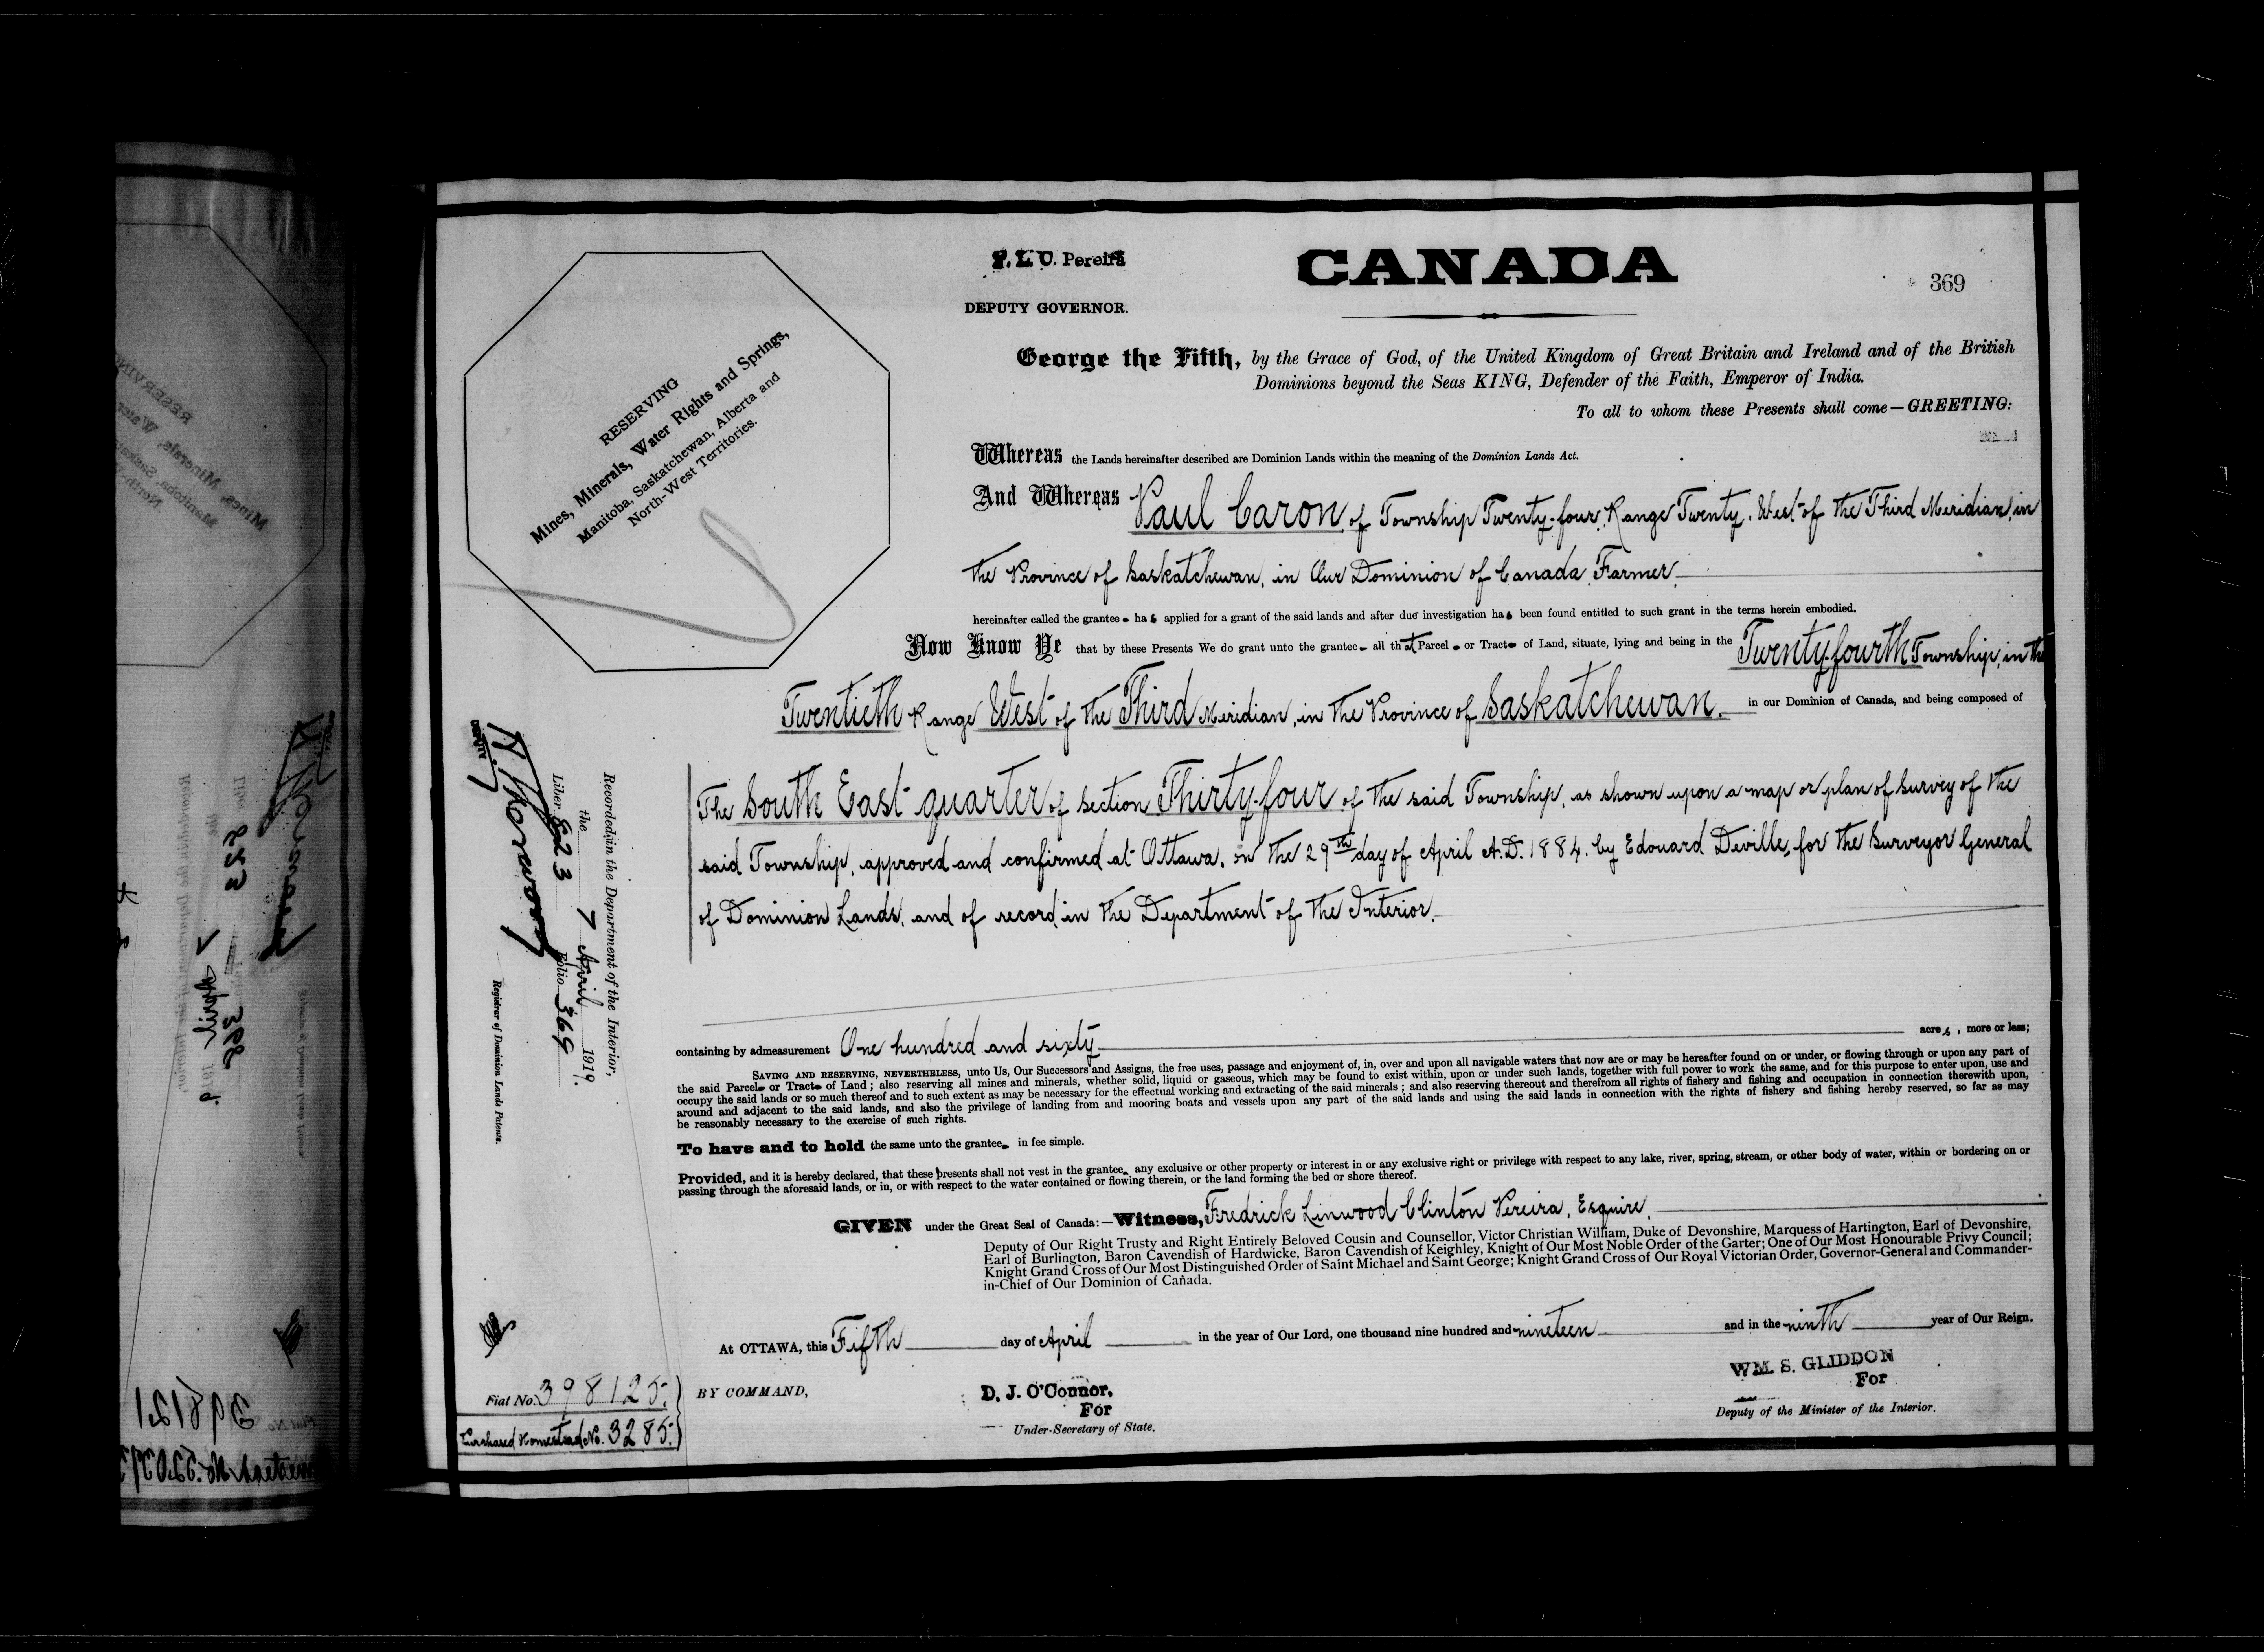 F. L. C. Pereira
DEPUTY GOVERNOR.
CANADA
369
RESERVING
Mines, Minerals, Water Rights and Springs,
Manitoba, Saskatchewan, Alberta and
North-West Territories.
George the Fifth, by the Grace of God, of the United Kingdom of Great Britain and Ireland and of the British
Dominions beyond the Seas KING, Defender of the Faith, Emperor of India.
To all to whom these Presents shall come—GREETING:
Whereas the Lands hereinafter described are Dominion Lands within the meaning of the Dominion Lands Act.
And Whereas Paul Caron, of Township Twenty-four, Range Twenty, West of the Third Meridian, in
the Province of Saskatchewan, in Our Dominion of Canada, Farmer,
hereinafter called the grantee has applied for a grant of the said lands and after due investigation has been found entitled to such grant in the terms herein embodied.
Now Know Ye that by these Presents We do grant unto the grantee all that Parcel or Tract of Land, situate, lying and being in the Twenty-fourth Township, in the
Twentieth Range West of the Third Meridian, in the Province of Saskatchewan, in our Dominion of Canada, and being composed of
The South East quarter of Section Thirty-four of the said Township, as shown upon a map or plan of survey of the
said Township, approved and confirmed at Ottawa, on the 29th day of April A.D. 1884, by Edouard Deville, for the Surveyor General
of Dominion Lands, and of record in the Department of the Interior.
containing by admeasurement One hundred and sixty acres, more or less;
SAVING AND RESERVING, NEVERTHELESS, unto Us, Our Successors and Assigns, the free uses, passage and enjoyment of, in, over and upon all navigable waters that now are or may be hereafter found on or under, or flowing through or upon any part of
the said Parcel or Tract of Land; also reserving all mines and minerals, whether solid, liquid or gaseous, which may be found to exist within, upon or under such lands, together with full power to work the same, and for this purpose to enter upon, use and
occupy the said lands or so much thereof and to such extent as may be necessary for the effectual working and extracting of the said minerals; and also reserving thereout and therefrom all rights of fishery and fishing and occupation in connection therewith upon,
around and adjacent to the said lands, and also the privilege of landing from and mooring boats and vessels upon any part of the said lands and using the said lands in connection with the rights of fishery and fishing hereby reserved, so far as may
be reasonably necessary to the exercise of such rights.
To have and to hold the same unto the grantee in fee simple.
Provided, and it is hereby declared, that these presents shall not vest in the grantee any exclusive or other property or interest in or any exclusive right or privilege with respect to any lake, river, spring, stream, or other body of water, within or bordering on or
passing through the aforesaid lands, or in, or with respect to the water contained or flowing therein, or the land forming the bed or shore thereof.
GIVEN under the Great Seal of Canada:—Witness, Fredrick Linwood Clinton Pereira, Esquire,
Deputy of Our Right Trusty and Right Entirely Beloved Cousin and Counsellor, Victor Christian William, Duke of Devonshire, Marquess of Hartington, Earl of Devonshire,
Earl of Burlington, Baron Cavendish of Hardwicke, Baron Cavendish of Keighley, Knight of Our Most Noble Order of the Garter; One of Our Most Honourable Privy Council;
Knight Grand Cross of Our Most Distinguished Order of Saint Michael and Saint George; Knight Grand Cross of Our Royal Victorian Order, Governor-General and Commander-
in-Chief of Our Dominion of Canada.
At OTTAWA, this Fifth day of April in the year of Our Lord, one thousand nine hundred and nineteen and in the ninth year of Our Reign.
BY COMMAND,
D. J. O'Connor,
For
Under-Secretary of State.
WM. S. GLIDDON
For
Deputy of the Minister of the Interior.
Recorded in the Department of the Interior,
the 7 April 1919.
Liber 523 Folio 369
Registrar of Dominion Lands Patents.
Fiat No. 398125.
Purchased Homestead No. 3285.